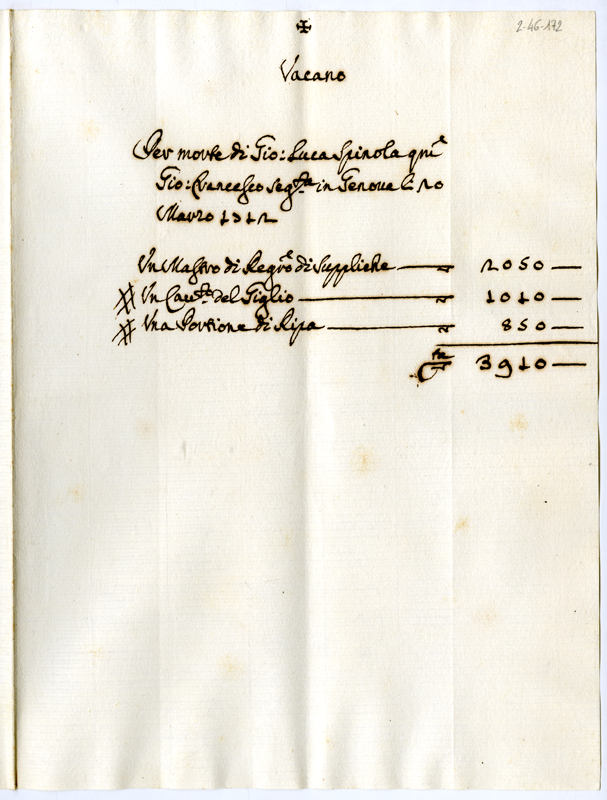 2-46-172
✠
Vacano
Per morte di Gio: Luca Spinola qm̃
Gio: Francesco seg.ta in Genova li 20
Marzo 1712
Un Mastro di Regro di Suppliche — 2050 —
# Un Cau.to del Giglio — 1010 —
# Una Portione di Ripa — 850 —
3910 —